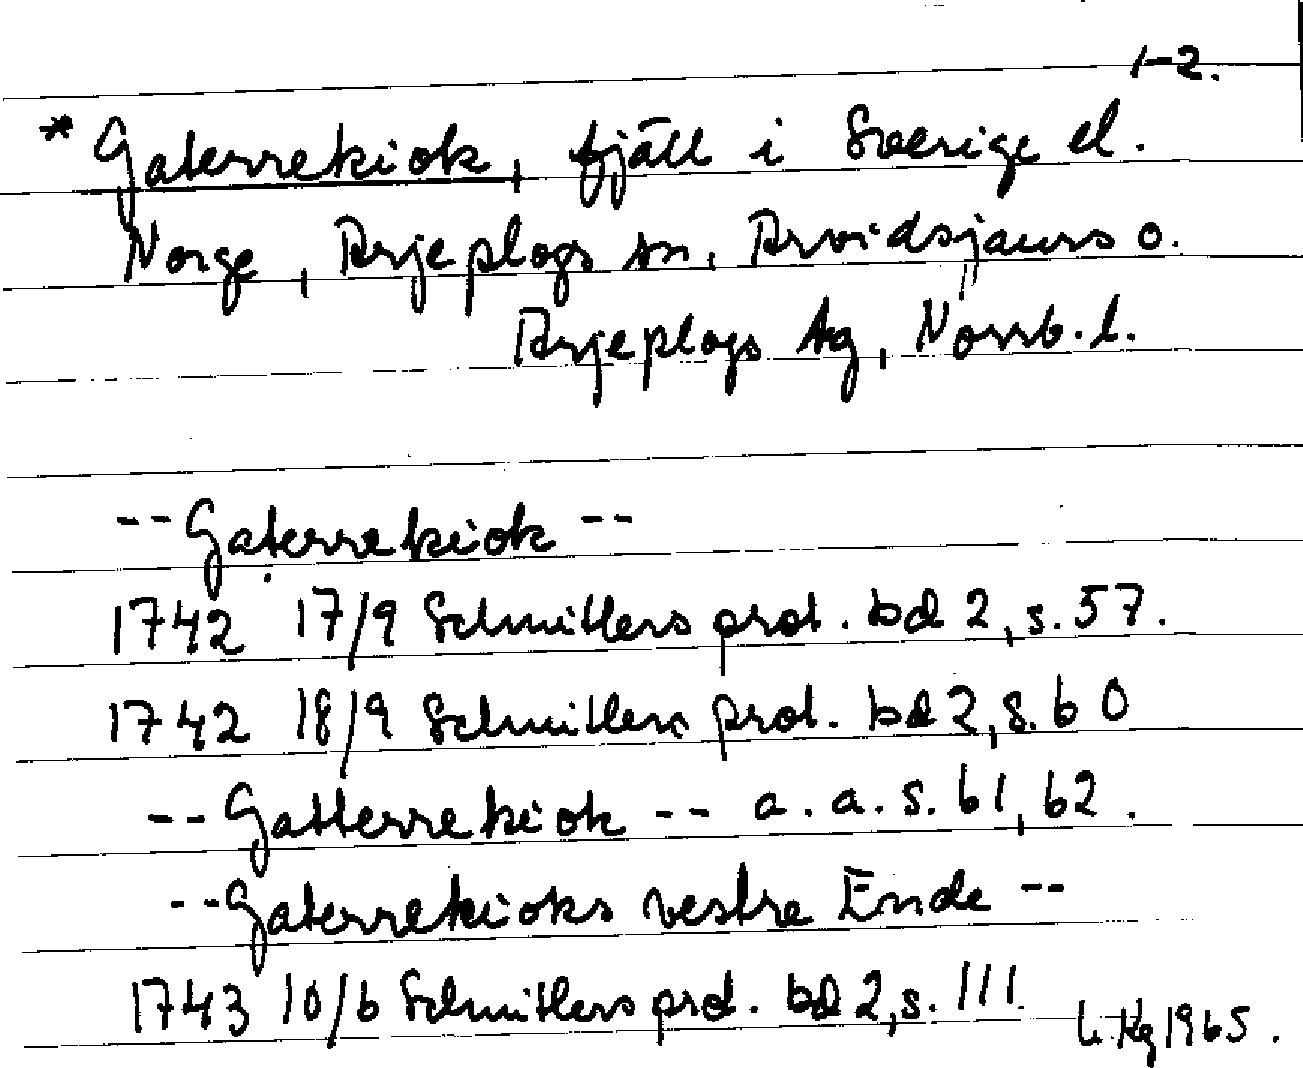 1-2.
* Gaterrekiok, fjäll i Sverige el.
Norge, Arjeplogs sn, Arvidsjaurs o.
Arjeplogs tg, Norrb. l.
-- Gaterrekiok --
1742 17/9 Schnitlers prot. bd 2, s. 57.
1742 18/9 Schnitlers prot. bd 2, s. 60
-- Gatterrekiok -- a. a. s. 61, 62.
-- Gaterrekioks vestre Ende --
1743 10/6 Schnitlers prot. bd 2, s. 111.
Kg 1965.